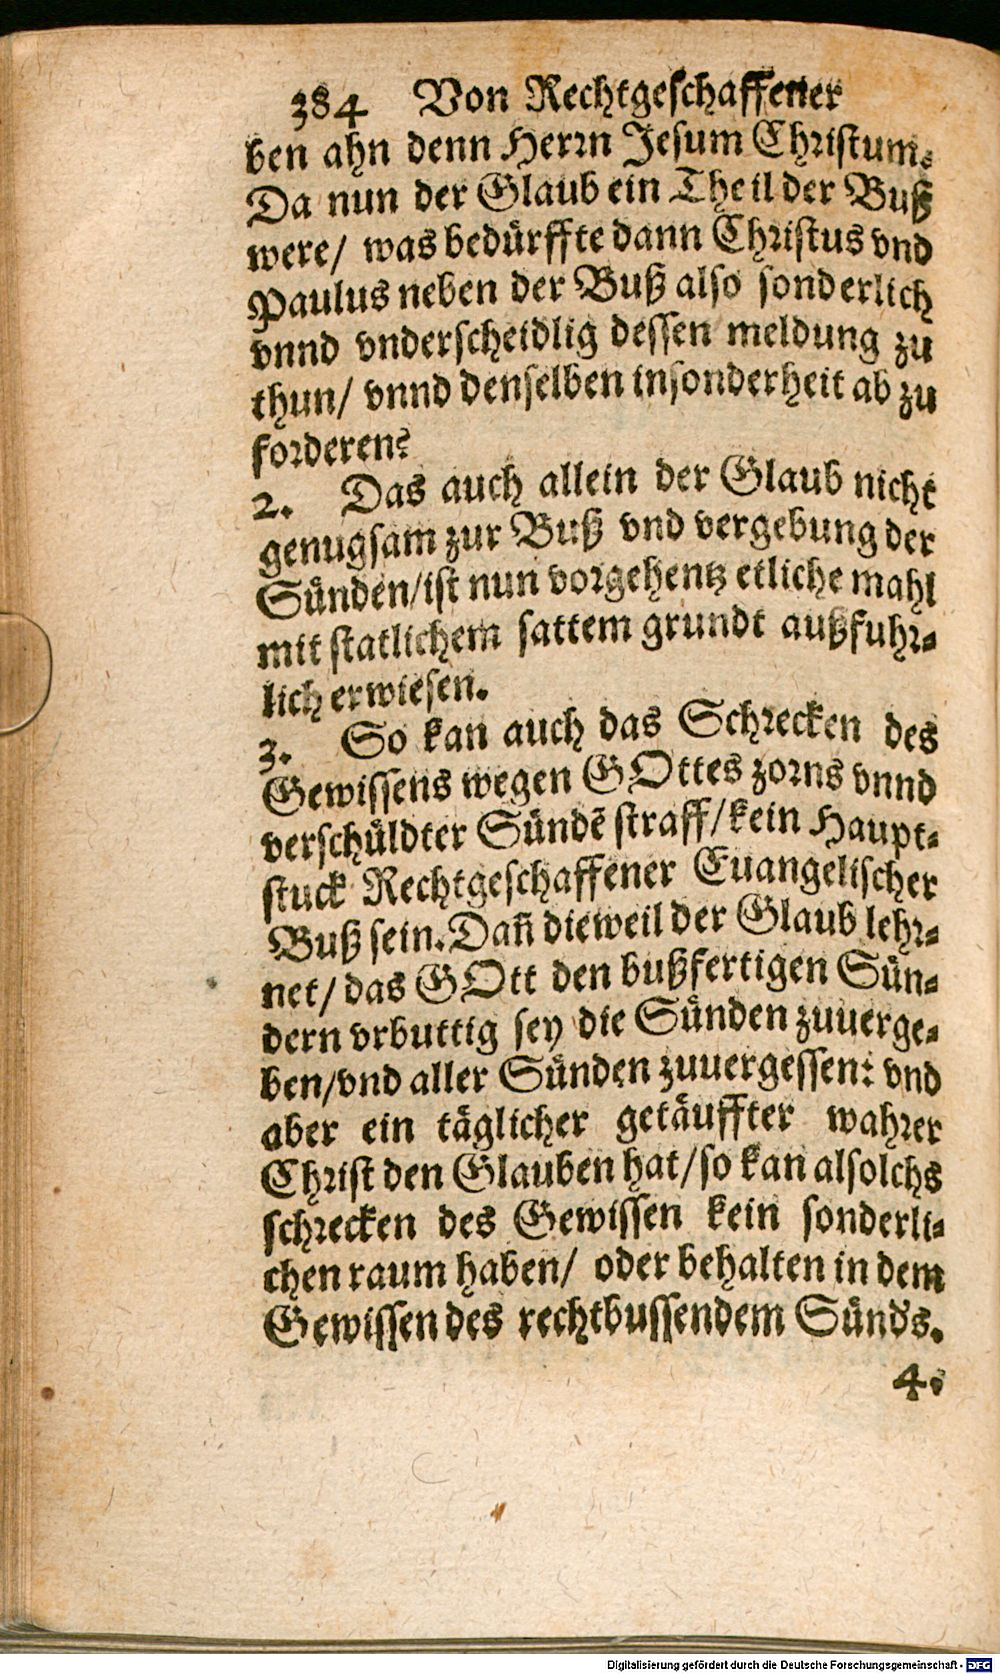 384 Von Rechtgeschaffener
ben ahn denn Herrn Jesum Christum.
Da nun der Glaub ein Theil der Buß
were/ was bedürffte dann Christus vnd
Paulus neben der Buß also sonderlich
vnnd vnderscheidlig dessen meldung zu
thun/ vnnd denselben insonderheit ab zu
forderen?
2. Das auch allein der Glaub nicht
genugsam zur Buß vnd vergebung der
Sünden/ist nun vorgehentz etliche mahl
mit statlichem sattem grundt außfuhr-
lich erwiesen.
3. So kan auch das Schrecken des
Gewissens wegen GOttes zorns vnnd
verschüldter Sündẽ straff/kein Haupt-
stuck Rechtgeschaffener Euangelischer
Buß sein. Dañ dieweil der Glaub lehr-
net/ das GOtt den bußfertigen Sün-
dern vrbuttig sey die Sünden zuuerge-
ben/vnd aller Sünden zuuergessen: vnd
aber ein täglicher getäuffter wahrer
Christ den Glauben hat/so kan alsolchs
schrecken des Gewissen kein sonderli-
chen raum haben/ oder behalten in dem
Gewissen des rechtbussendem Sünd's.
4.
Digitalisierung gefördert durch die Deutsche Forschungsgemeinschaft - DFG